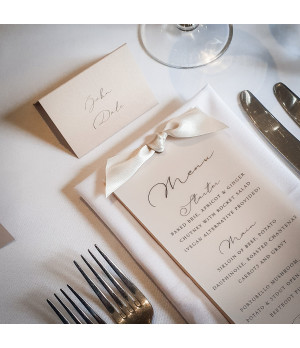 John
Dale
Menu
Starter
BAKED BRIE, APRICOT & GINGER
CHUTNEY WITH ROCKET SALAD
(VEGAN ALTERNATIVE PROVIDED)
Main
SIRLOIN OF BEEF, POTATO
DAUPHINOISE, ROASTED CHANTENAY
CARROTS AND GRAVY
PORTOBELLO MUSHROOM,
POTATO,